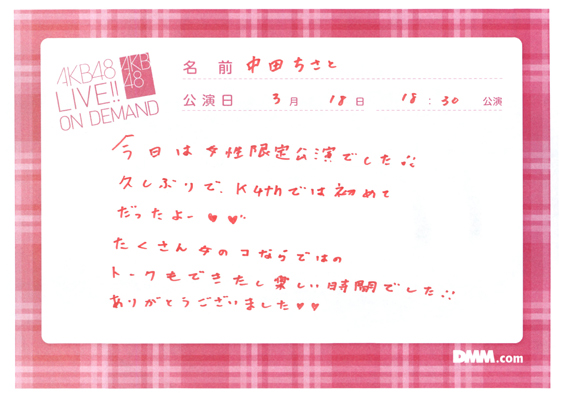 AKB48
LIVE!!
ON DEMAND
AKB
48
名 前 中田ちさと
公演日 3月 18日 18:30 公演
今日は女性限定公演でした
久しぶりで、K4thでは初めて
だったよー♥♥
たくさん女のコならではの
トークもできたし楽しい時間でした
ありがとうございました♥♥
DMM.com